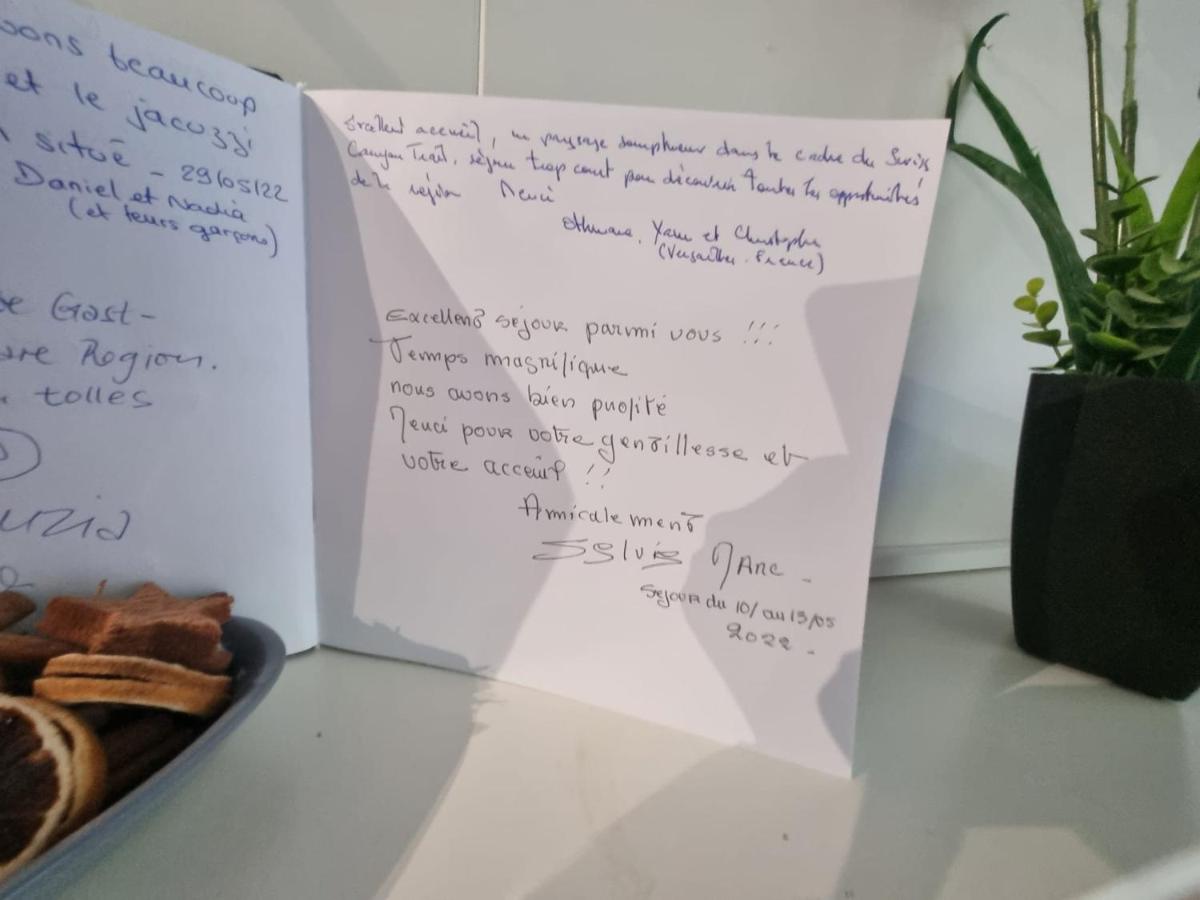 vons beaucoup
et le jacuzzi
situé - 29/05/22
Daniel et Nadia
(et leurs garçons)
Gast-
Region.
tolles
Excellent accueil, un paysage somptueux dans le cadre du Swiss
Canyon Trail, séjour trop court pour découvrir toutes les opportunités
de la région Merci
Othmane, Yann et Christophe
(Versailles - France)
Excellent séjour parmi vous !!!
Temps magnifique
nous avons bien profité
Merci pour votre gentillesse et
votre acceuil !!
Amicalement
Sylvie Marc -
Sejour du 10/ au 13/05
2022 -